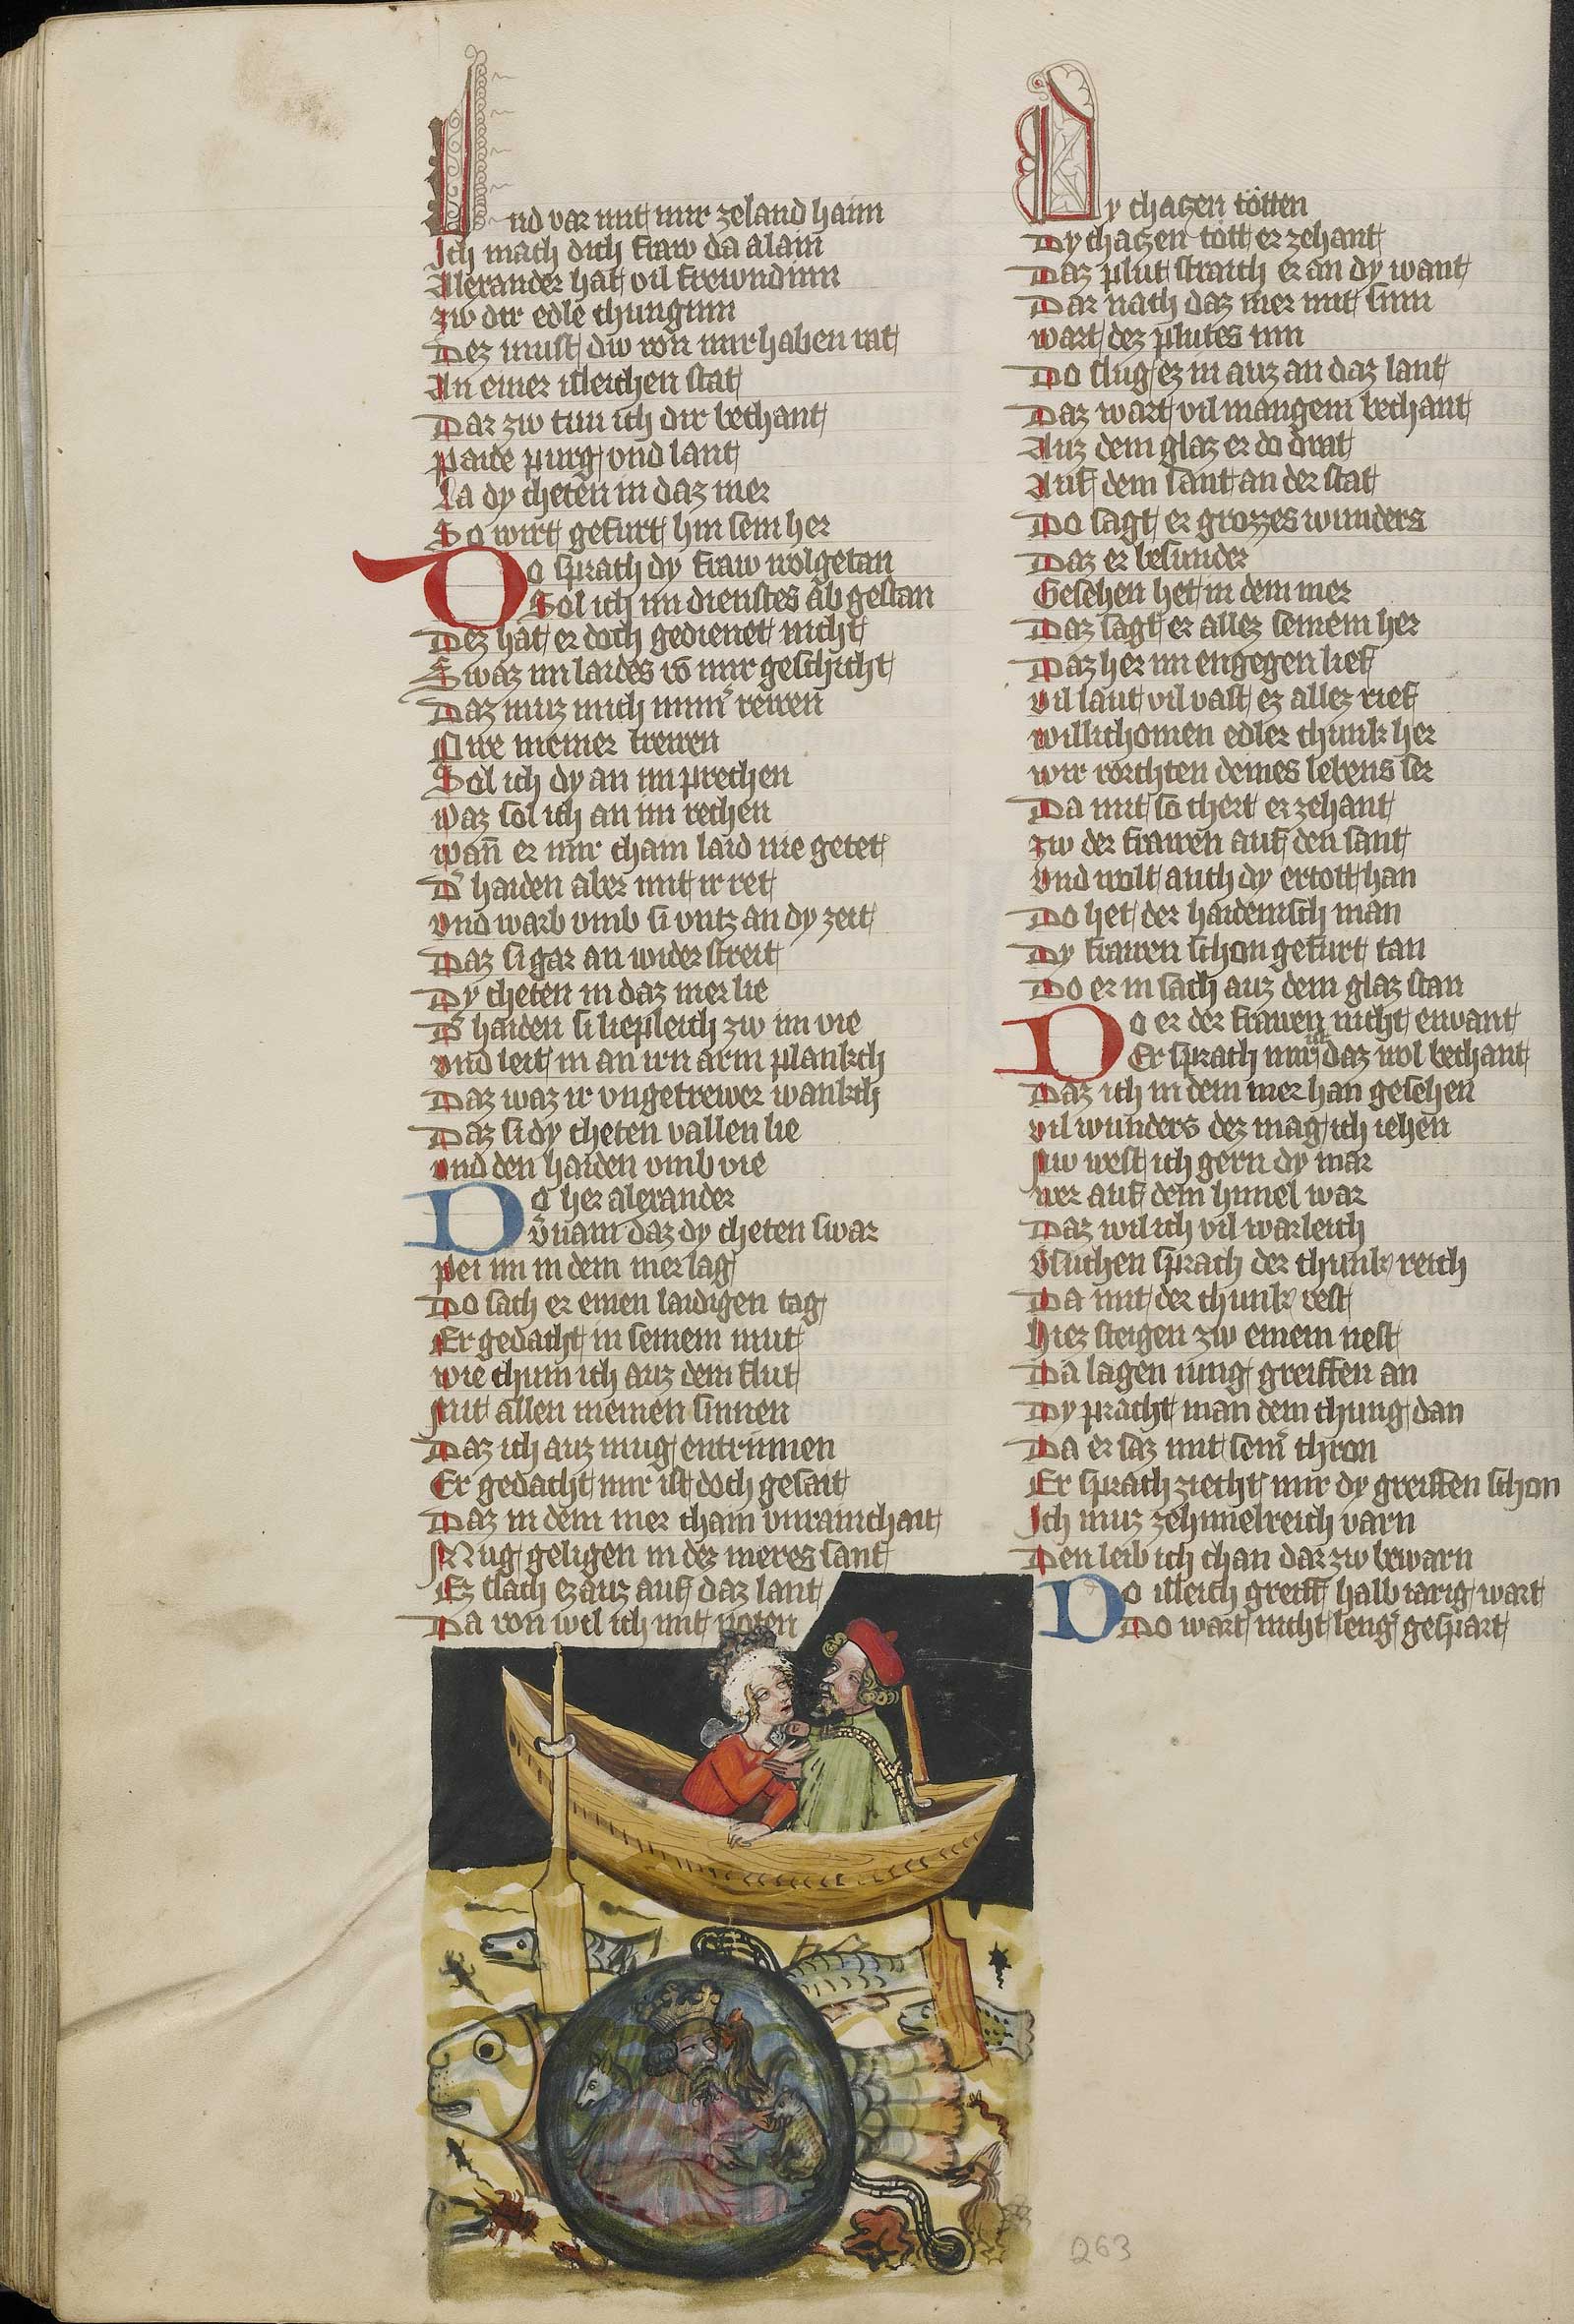 Und var mit mir ze land haim
Ich mach dich fraw da alain
Alexander hat vil frewndinn
zw dir edle chunginn
Dez must dw von mir haben rat
An einer itleichen stat
Dar zw tun ich dir bechant
paide purg vnd lant
La dy cheten in daz mer
So wirt gefurt hin sein her
Do sprach dy fraw wolgetan
Sol ich im dienstes ab gestan
Dez hat er doch gedienet nicht
Swaz im laides vo mir geschicht
Daz muz mich imm̄ rewen
Owe meiner trewen
Sol ich dy an im prechen
waz sol ich an im rechen
wan̄ er mir chain laid nie getet
D' haiden aber mit ir ret
vnd warb vmb si vntz an dy zeit
Daz si gar an wider streit
Dy cheten in daz mer lie
D' haiden si liepleich zw im vie
vnd leit in an irn arm plankch
Daz waz ir vngetrewer wankch
Daz si dy cheten vallen lie
vnd den haiden vmb vie
Do her alexander
v'nam daz dy cheten swar
pei im in dem mer lag
Do sach er einen laidigen tag
Er gedacht in seinem mut
wie chum ich auz dem flut
Mit allen meinen sinnen
Daz ich auz mug entrinnen
Er gedacht mir ist doch gesait
Daz in dem mer chain vnrainchait
Mug geligen in dez meres sant
Ez slach ez auz auf daz lant
Da von wil ich mit noten
Dy chatzen tötten
Dy chatzen tott er zehant
Daz plut straich er an dy want
Dar nach daz mer mit sinn
wart dez plutes inn
Do slug ez in auz an daz lant
Daz wart vil mangem bechant
Auz dem glaz er do drat
Auf dem sant an der stat
Do sagt er grozzes wunders
Daz er besunder
Gesehen het in dem mer
Daz sagt er allez seinem her
Daz her im engegen lief
vil laut vil vast ez allez rief
willichomen edler chunk her
wir vorchten deines lebens ser
Da mit so chert er zehant
zw der frawen auf den sant
vnd wolt auch dy ertott han
Do het der haidenisch man
Dy frawen schon gefurt tan
Do er in sach auz dem glaz stan
Do er der frawen nicht envant
Er sprach mir ist daz wol bechant
Daz ich in dem mer han gesehen
vil wunders dez mag ich iehen
Nw west ich gern dy mar
wer auf dem himel war
Daz wil ich vil warleich
Vsuchen sprach der chunk reich
Da mit der chunk vest
hiez steigen zw einem nest
Da lagen iung greiffen an
Dy pracht man dem chung dan
Da er saz mit sein̄ chron
Er sprach ziecht mir dy greiffen schon
Ich muz ze himelreich varn
Den leib ich chan dar zw bewarn
Do itleich greiff halb iarig wart
Do wart nicht leng' gespart
263